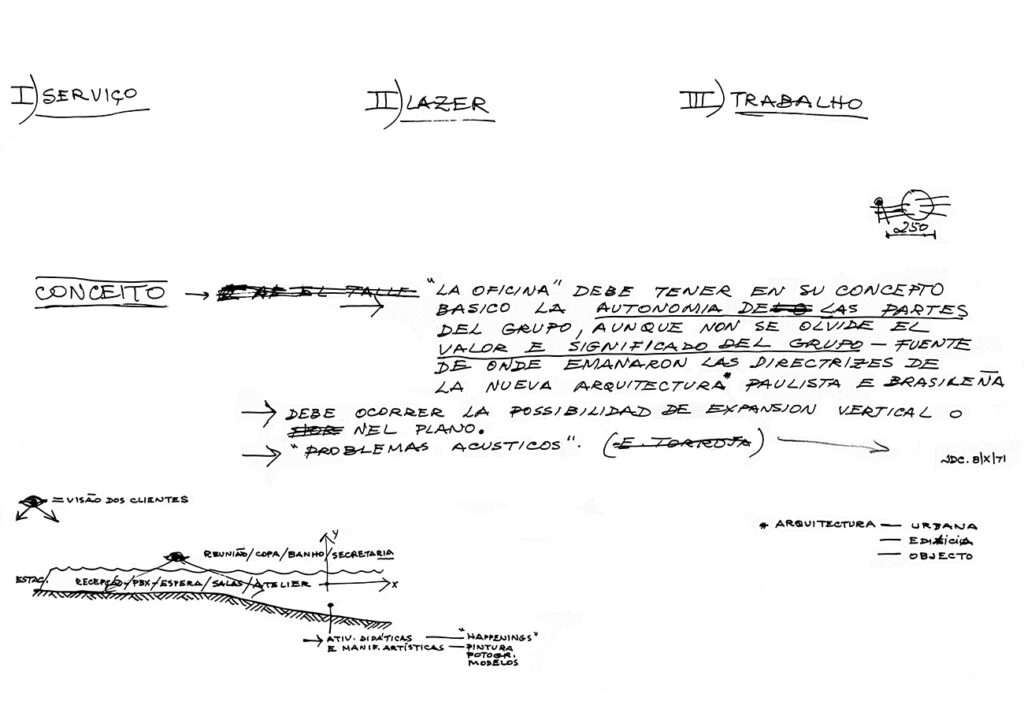 I) SERVIÇO
II) LAZER
III) TRABALHO
250
CONCEITO → EL TALLE
→ "LA OFICINA" DEBE TENER EN SU CONCEPTO
BASICO LA AUTONOMIA DE LAS PARTES
DEL GRUPO, AUNQUE NON SE OLVIDE EL
VALOR E SIGNIFICADO DEL GRUPO – FUENTE
DE ONDE EMANARON LAS DIRECTRIZES DE
LA NUEVA ARQUITECTURA* PAULISTA E BRASILEÑA
→ DEBE OCORRER LA POSSIBILIDAD DE EXPANSION VERTICAL O
NEL PLANO.
→ "PROBLEMAS ACUSTICOS". (E. TORROJA) →
JDC. 8/X/71
= VISÃO DOS CLIENTES
* ARQUITECTURA — URBANA
— EDIFICIA
— OBJECTO
Y
REUNIÃO/COPA/BANHO/SECRETARIA
ESTAC. RECEPÇÃO/PBX/ESPERA/SALAS/ATELIER X
→ ATIV. DIDÁTICAS — "HAPPENINGS"
E MANIF. ARTÍSTICAS — PINTURA
FOTOGR.
MODELOS